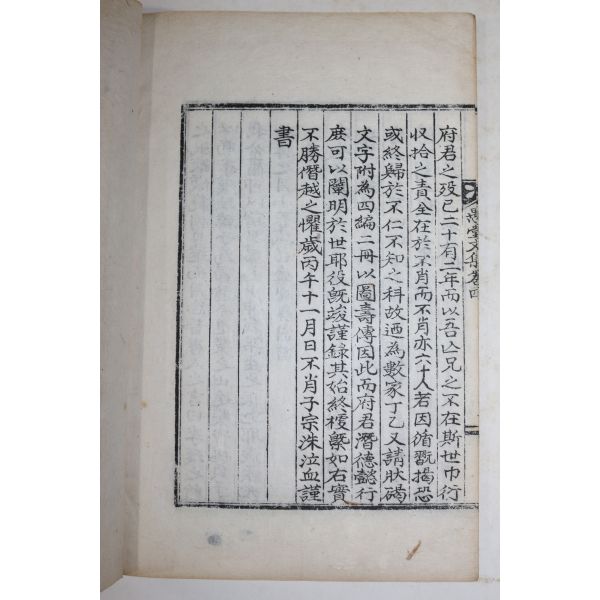 府君之歿已二十有二年而以吾亡兄之不在斯世巾衍
収拾之責全在於不肖而不肖亦六十人若因循翫揭恐
或終歸於不仁不知之科故迺為數家丁乙又請狀碣
文字附為四編二冊以圖壽傳因此而府君潛德懿行
庶可以闡明於世耶役旣竣謹録其始終槩如右實
不勝僭越之懼歲丙午十一月日不肖子宗洙泣血謹
書
堂文集卷四